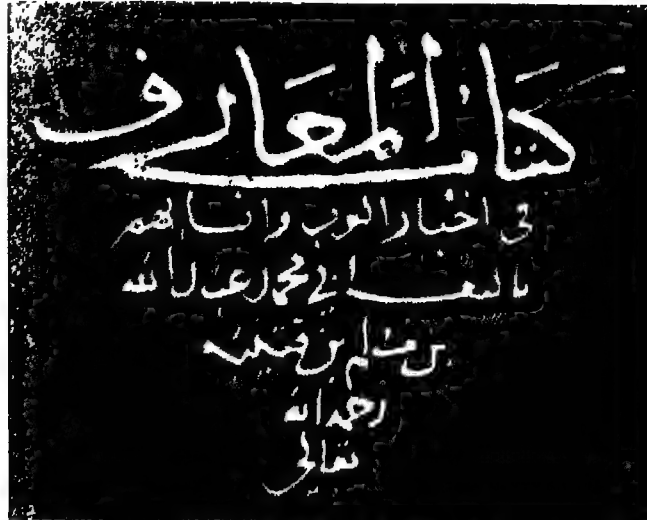 كتاب المعارف
في اخبار العرب وانسابهم
تاليف ابي محمد عبدالله
بن مسلم بن قتيبه
رحمه الله
تعالى